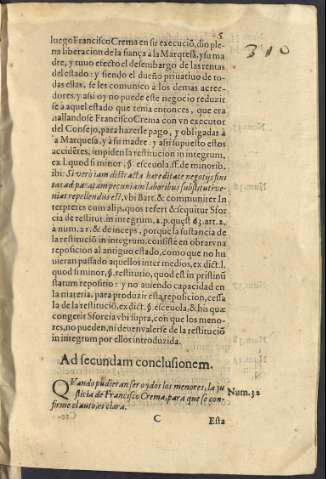 5
310
luego Francisco Crema en su execució, dio ple
na liberacion de la fiança à la Marquesa, y su ma
dre, y tuuo efecto el desembargo de las rentas
del estado: y siendo el dueño priuatiuo de to-
das estas, se les comunicò a los demas acree-
dores, y asi oy no puede este negocio reduzir
se à aquel estado que tenia entonces, que era
hallandose Francisco Crema con vn executor
del Consejo, para hazerle pago, y obligadas à
la Marquesa, y à su madre: y asi supuesto estos
accidẽtes, impiden la restitucion in integrum,
ex l. quod si minor, §. esceuola. ff. de minorib.
ibi: Si veriam distracta hæreditate negotijs fini
tas ad paratam pecuniam laboribus substituti ve-
nias repellendus est, vbi Bart. & communiter In
terpretes cum alijs quos refert & sequitur Sfor
cia de restitut. in integrum, 2. p. quęst. 63. art. 2.
a num. 28. & de inceps, porque la sustancia de
la restituciõ in integrum, consiste en obrar vna
reposicion al antiguo estado, como que no hu
uieran passado aquellos intermedios, ex dict. l.
quod si minor, §. restitutio, quod est in pristinũ
statum repositio: y no auiendo capacidad en
la materia, para produzir esta reposicion, cessa
la de la restituciõ, ex dict. §. esceuola, & his quæ
congerit Sforcia vbi supra, con que los meno-
res, no pueden, ni deuen valerse de la restituciõ
in integrum por ellos introduzida.
Ad secundam conclusionem.
QVando pudieran ser oydos los menores, la ju
sticia de Francisco Crema, para que se con-
firme el auto, es clara.
Num. 32
C
Esta